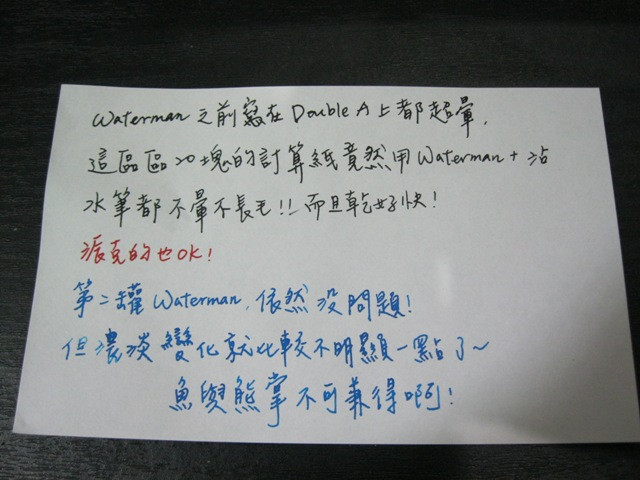 Waterman 之前寫在 Double A 上都超暈,
這區區20塊的計算紙竟然用 Waterman + 沾
水筆都不暈不長毛!! 而且乾好快!
派克的也OK!
第二罐 Waterman, 依然沒問題!
但濃淡變化就比較不明顯一點了~
魚與熊掌不可兼得啊!